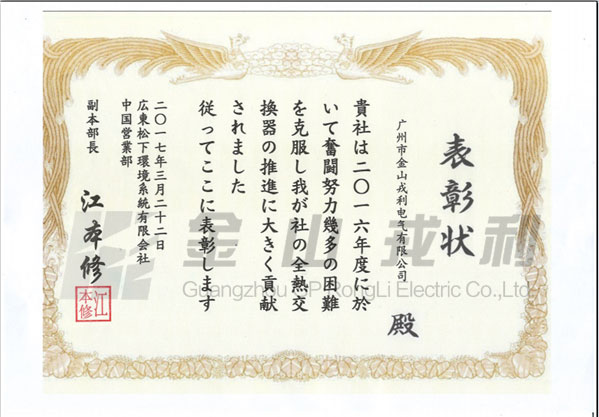 表彰状
广州市金山戎利电气有限公司
殿
貴社は二〇一六年度に於
いて奮闘努力幾多の困難
を克服し我が社の全熱交
換器の推進に大きく貢献
されました
従ってここに表彰します
二〇一七年三月二十二日
広東松下環境系統有限会社
中国営業部
副本部長
江本修
江本修
金山戎利
Guangzhou JP RongLi Electric Co.,Ltd